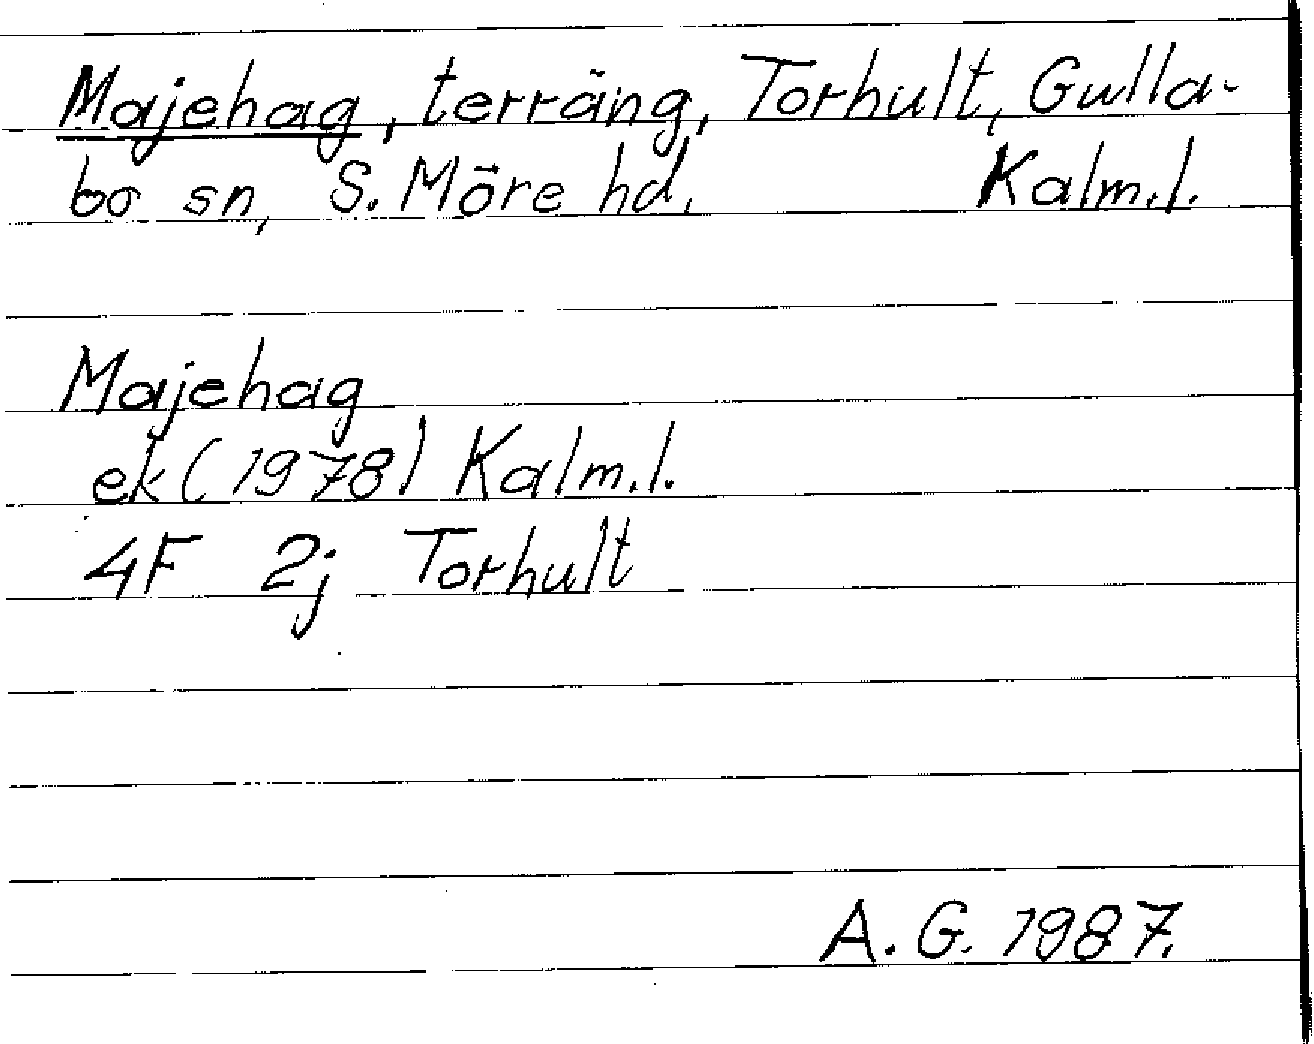 Majehag, terräng, Torhult, Gulla-
bo sn, S. Möre hd. Kalm.l.
Majehag
ek (1978) Kalm.l.
4F 2j Torhult
A. G. 1987.